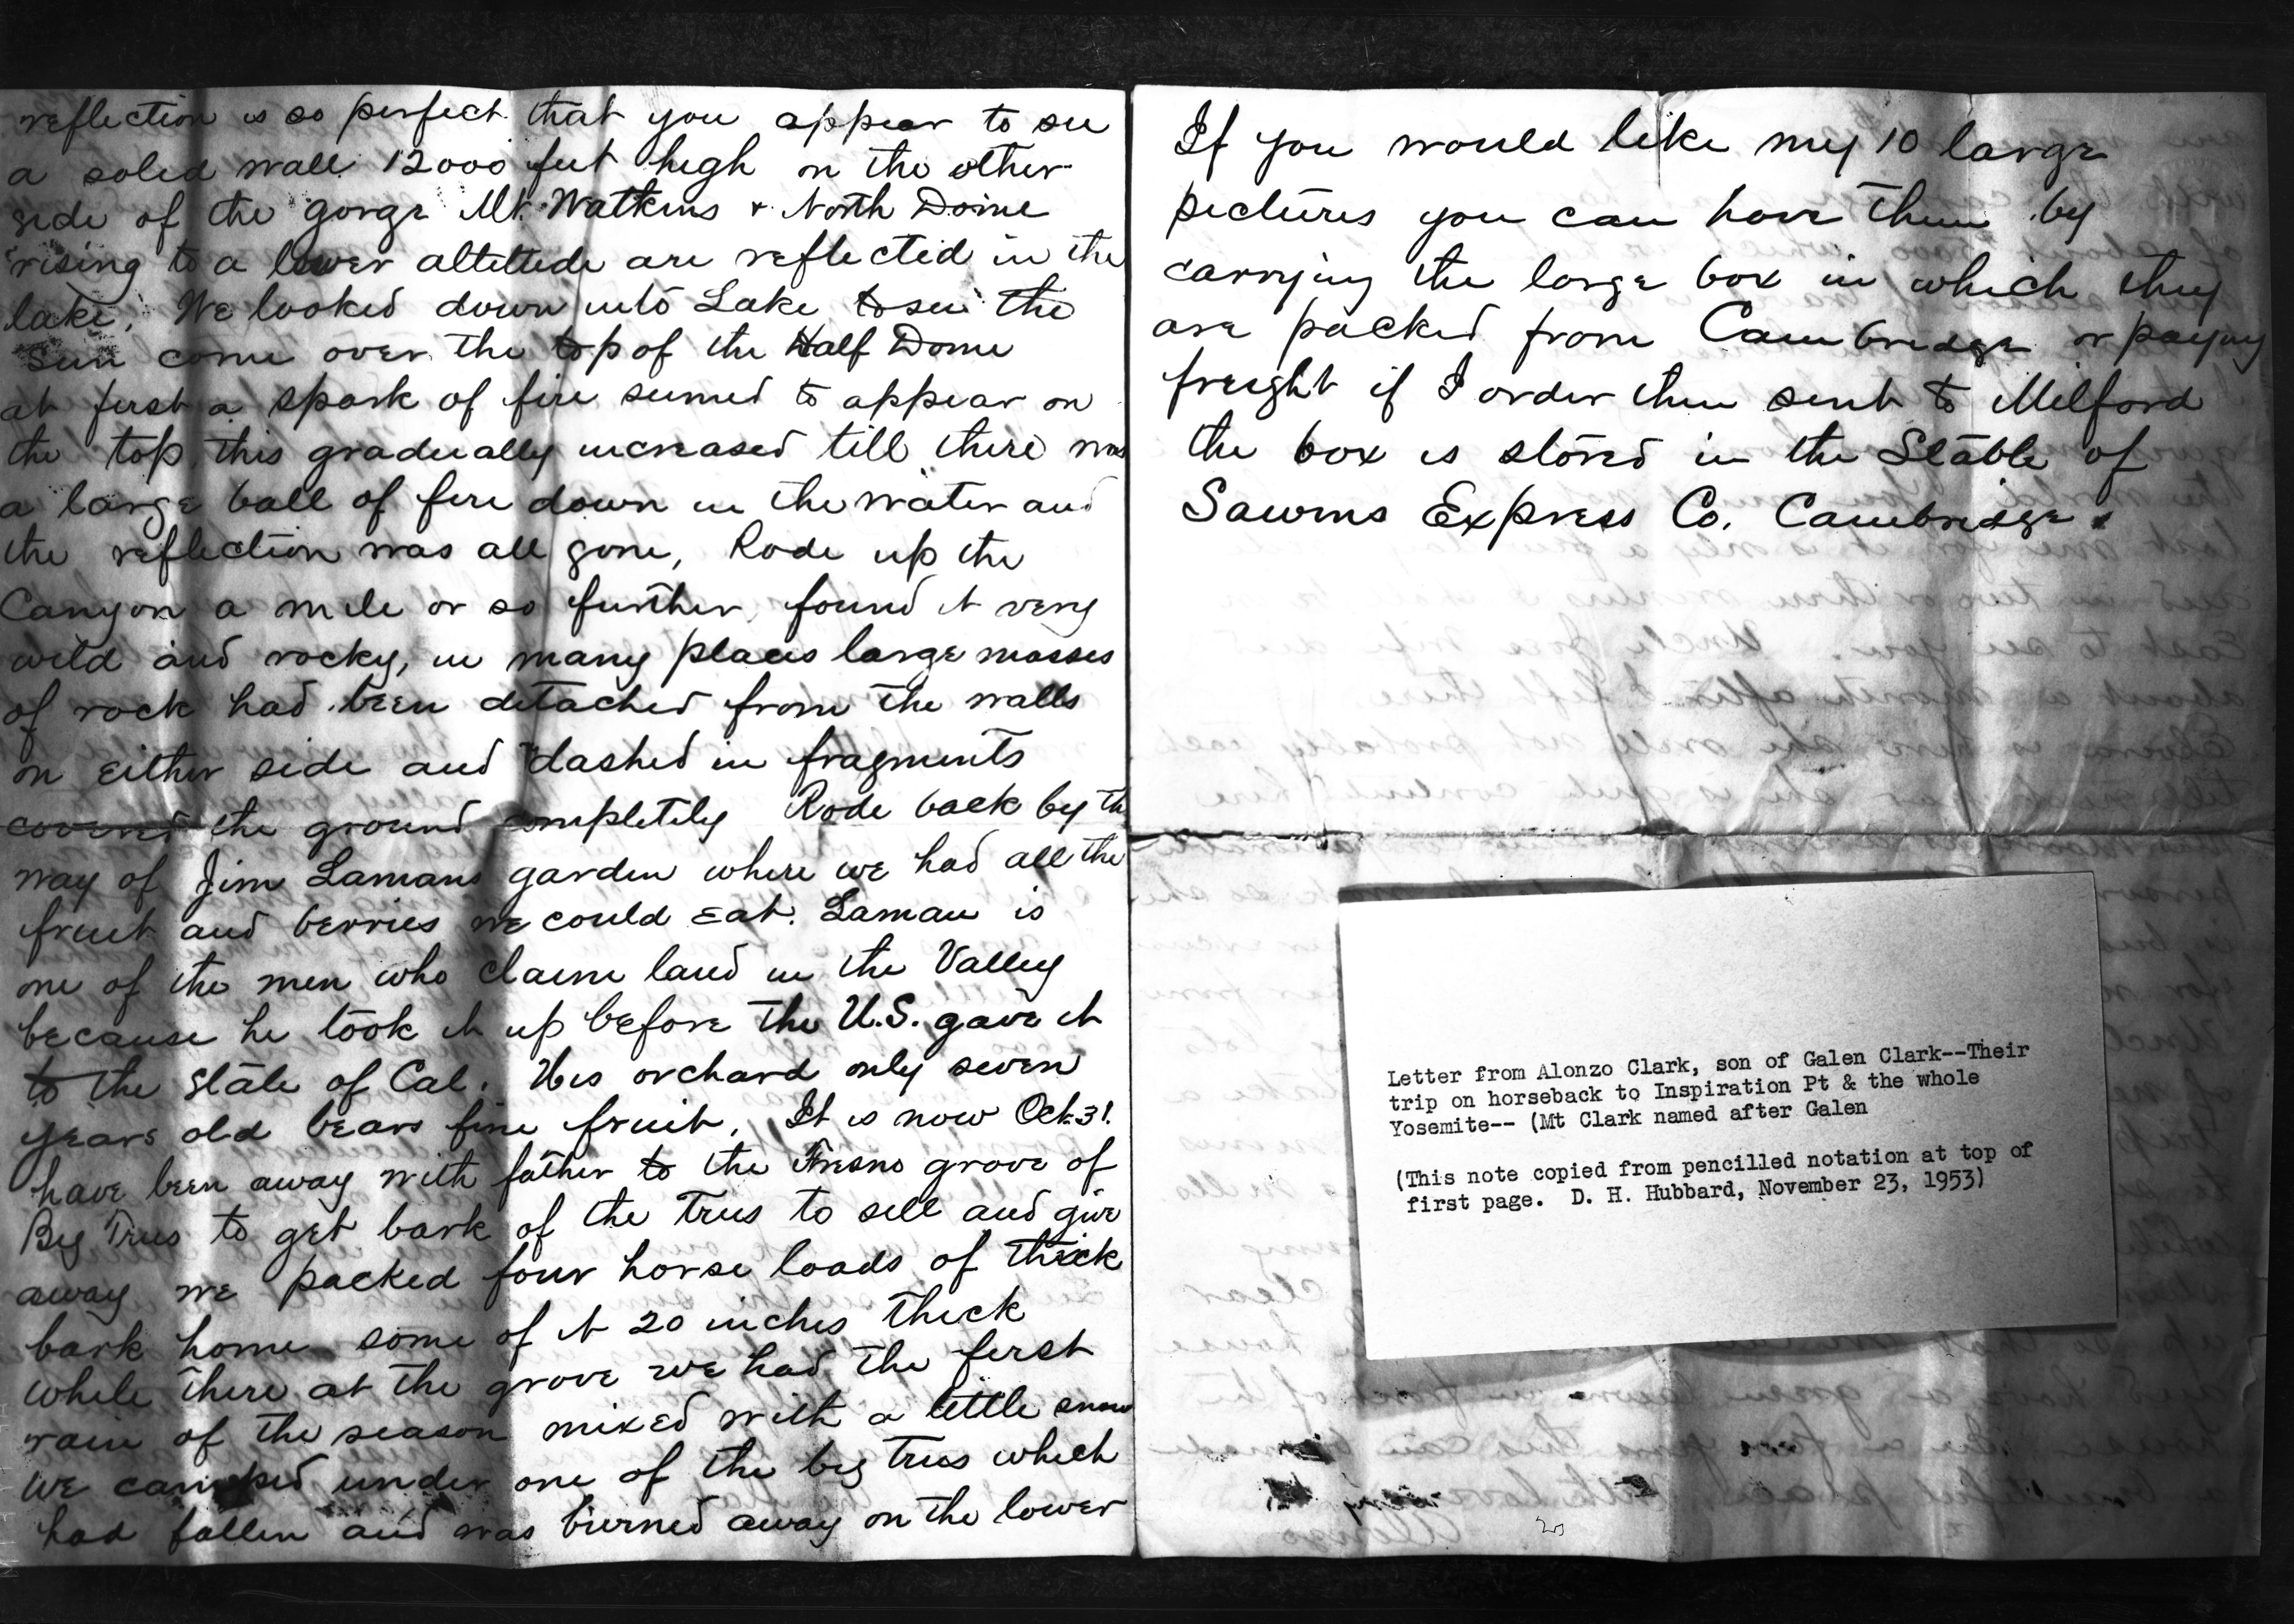 reflection is so perfect that you appear to see
a solid wall 12000 feet high on the other
side of the gorge Mt. Watkins & North Dome
rising to a lower altitude are reflected in the
lake. We looked down into Lake to see the
sun come over the top of the Half Dome
at first a spark of fire seemed to appear on
the top, this gradually increased till there was
a large ball of fire down in the water and
the reflection was all gone, Rode up the
Canyon a mile or so further, found it very
wild and rocky, in many places large masses
of rock had been detached from the walls
on either side and dashed in fragments
covered the ground completely Rode back by the
way of Jim Lamans garden where we had all the
fruit and berries we could eat. Laman is
one of the men who claim land in the Valley
because he took it up before the U.S. gave it
to the State of Cal. His orchard only seven
years old bears fine fruit. It is now Oct. 31.
have been away with father to the Fresno grove of
Big Trees to get bark of the Trees to sell and give
away we packed four horse loads of thick
bark home some of it 20 inches thick
while there at the grove we had the first
rain of the season mixed with a little snow
we camped under one of the big trees which
had fallen and was burned away on the lower
If you would like my 10 large
pictures you can have them by
carrying the large box in which they
are packed from Cambridge or paying
freight if I order them sent to Milford
the box is stored in the Stable of
Sawins Express Co. Cambridge
Letter from Alonzo Clark, son of Galen Clark--Their
trip on horseback to Inspiration Pt & the whole
Yosemite-- (Mt Clark named after Galen
(This note copied from pencilled notation at top of
first page. D. H. Hubbard, November 23, 1953)